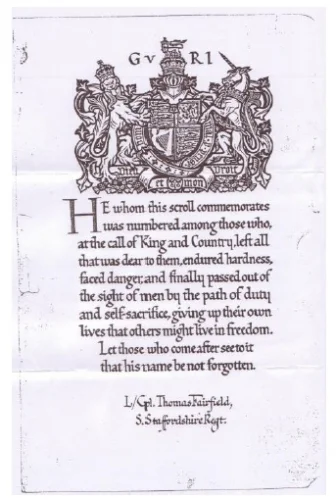 G V R I
Dieu et mon droit
HE whom this scroll commemorates
was numbered among those who,
at the call of King and Country, left all
that was dear to them, endured hardness,
faced danger, and finally passed out of
the sight of men by the path of duty
and self-sacrifice, giving up their own
lives that others might live in freedom.
Let those who come after see to it
that his name be not forgotten.
L/Cpl. Thomas Fairfield,
S. Staffordshire Regt.